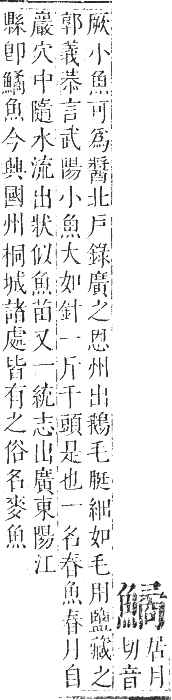 鱊
居月
切音
厥小魚可為醬北戶錄廣之恩州出鵝毛脡細如毛用鹽藏之
郭義恭言武陽小魚大如針一斤千頭是也一名春魚春月自
巖穴中隨水流出狀似魚苗又一統志出廣東陽江
縣卽鱊魚今興國州桐城諸處皆有之俗名麥魚